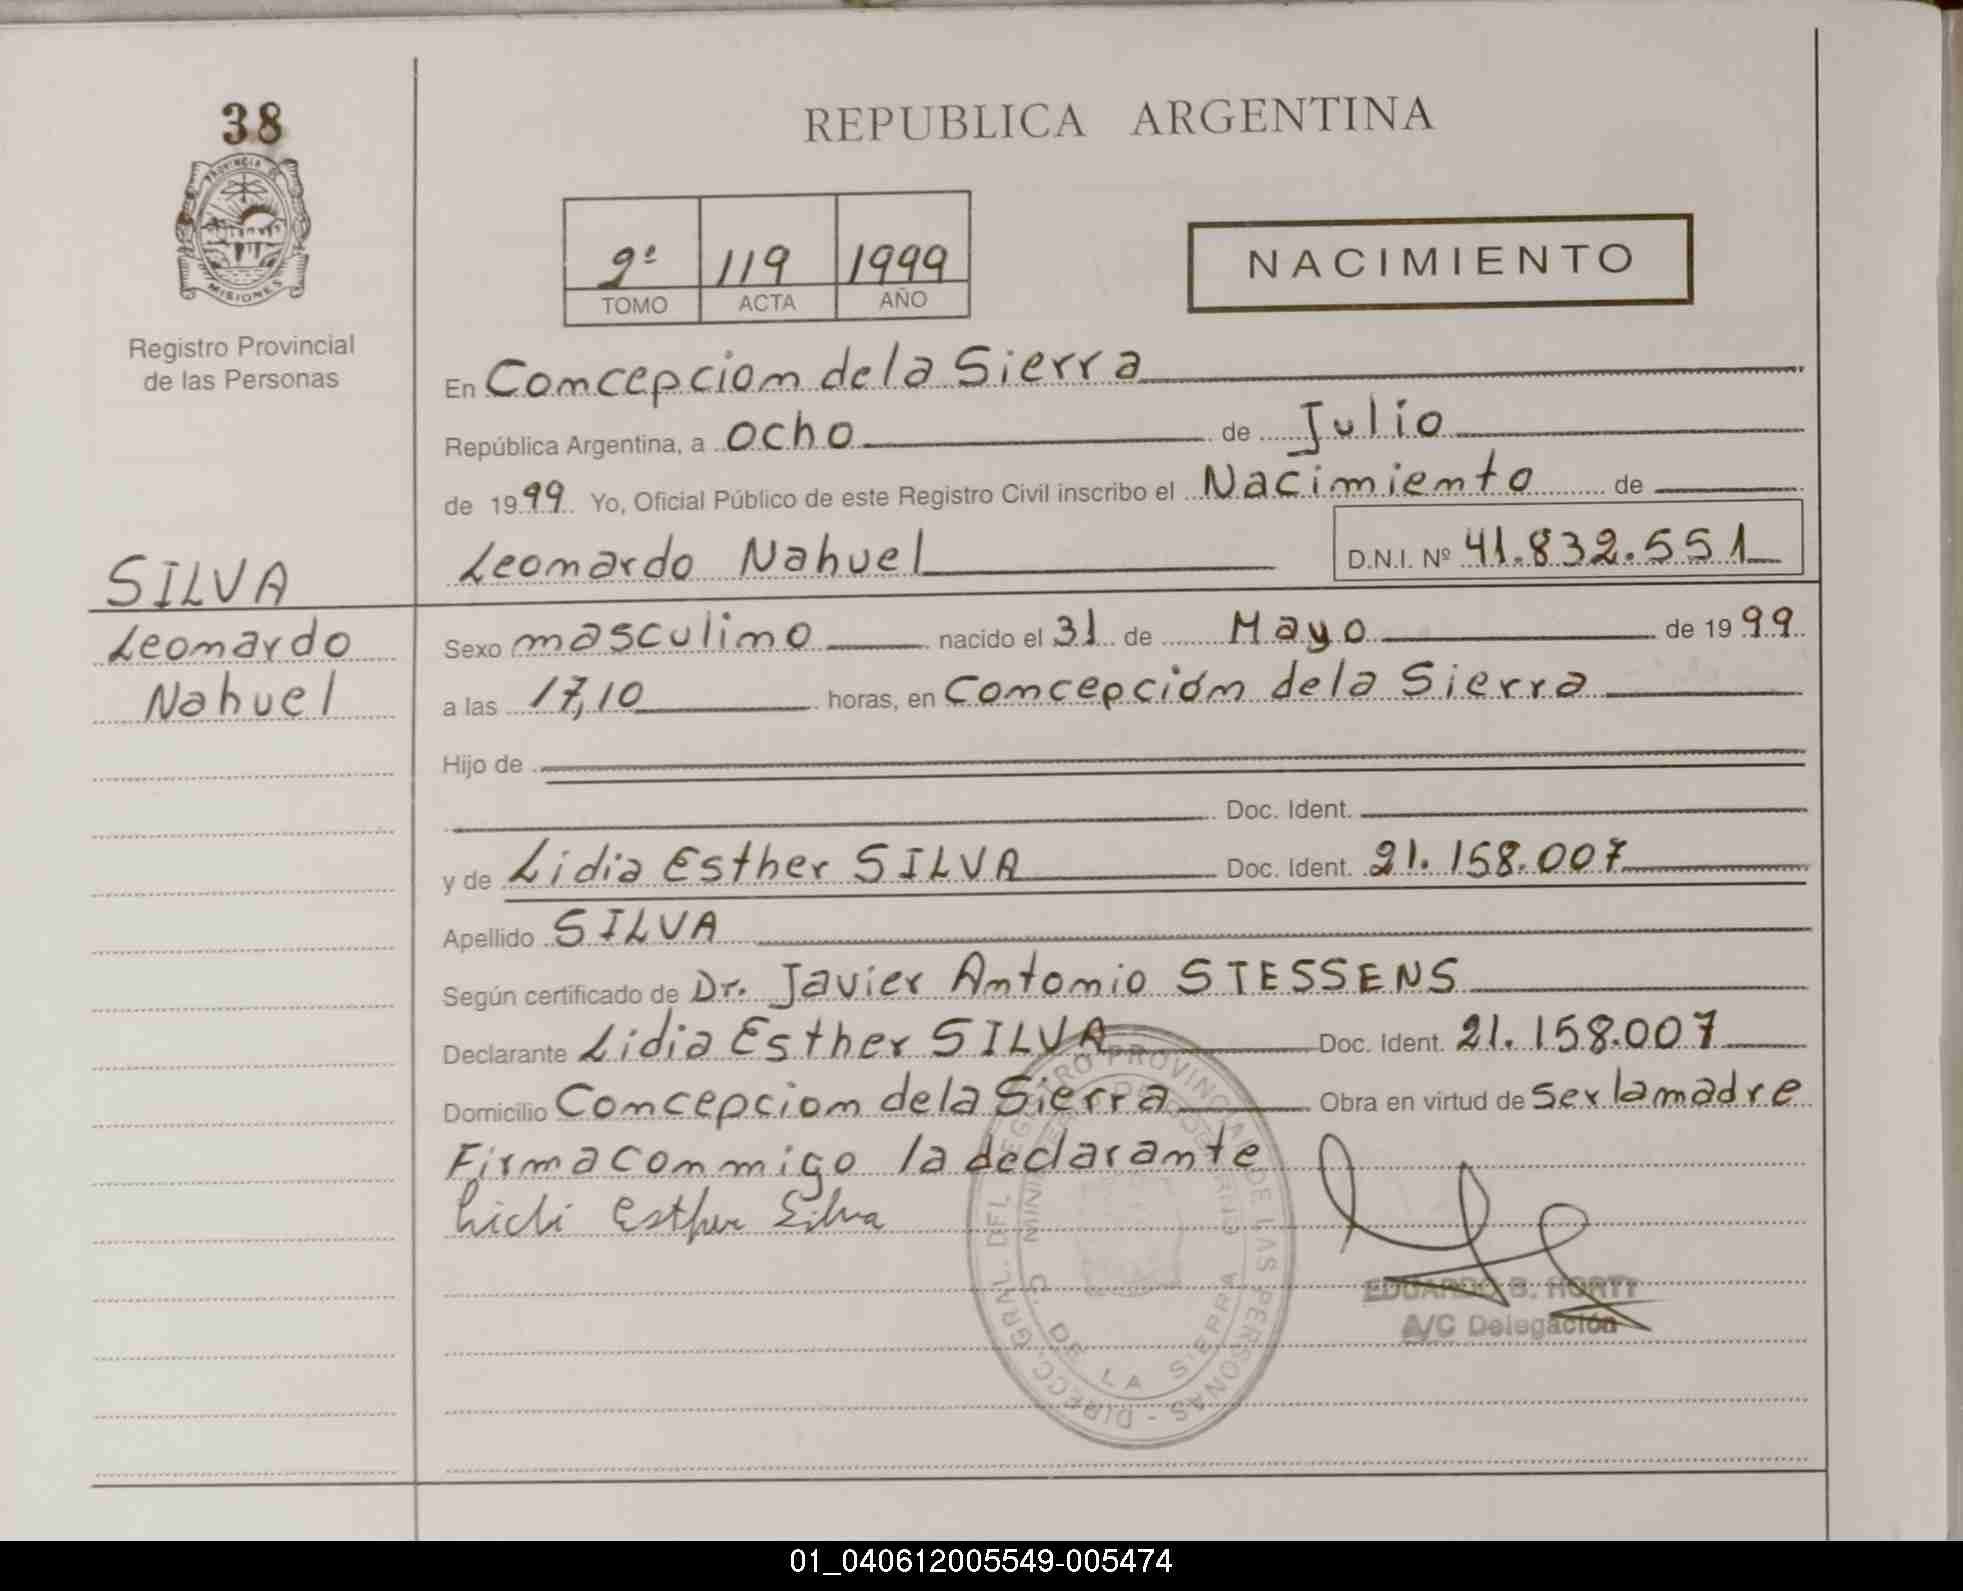 38
PROVINCIA DE
MISIONES
Registro Provincial
de las Personas
REPUBLICA ARGENTINA
2º 119 1999
TOMO ACTA AÑO
NACIMIENTO
En Concepcion de la Sierra
República Argentina, a ocho de Julio
de 1999 Yo, Oficial Público de este Registro Civil inscribo el Nacimiento de
Leonardo Nahuel D.N.I. Nº 41.832.551
SILVA
Leonardo
Nahuel
Sexo masculino nacido el 31 de Mayo de 1999
a las 17,10 horas, en Concepción de la Sierra
Hijo de
Doc. Ident.
y de Lidia Esther SILVA Doc. Ident. 21.158.007
Apellido SILVA
Según certificado de Dr. Javier Antonio STESSENS
Declarante Lidia Esther SILVA Doc. Ident. 21.158.007
Domicilio Concepcion de la Sierra Obra en virtud de ser la madre
Firma conmigo la declarante
Esther Silva
DIRECC. GRAL. DEL REGISTRO PROVINCIAL DE LAS PERSONAS -
C. DE LA SIERRA
EDUARDO B. HORTT
A/C Delegación
01_040612005549-005474